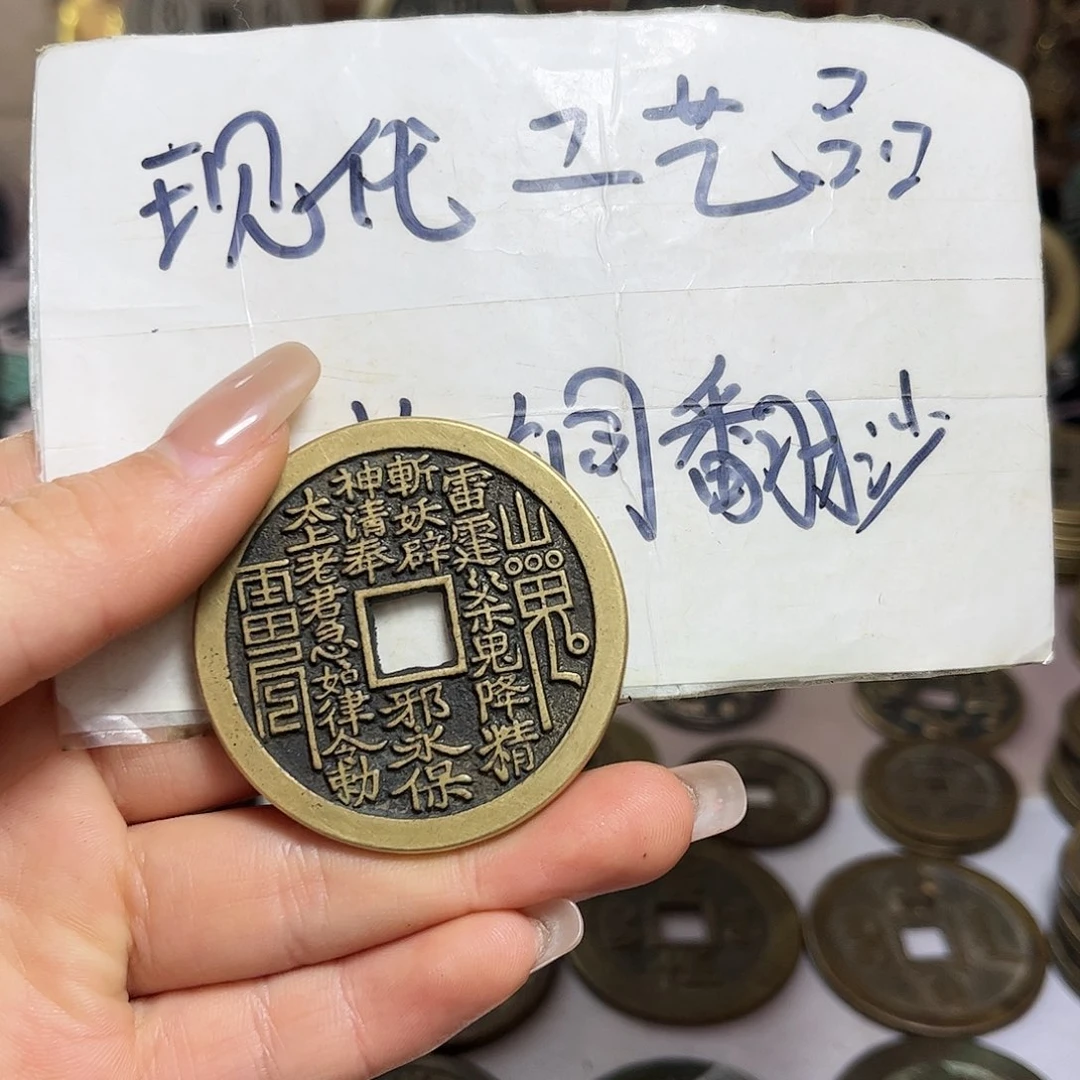 现代 工艺品
铜翻沙
雷霆〻杀鬼降精
斬妖辟邪永保
神清奉
太上老君急〻如律令勅